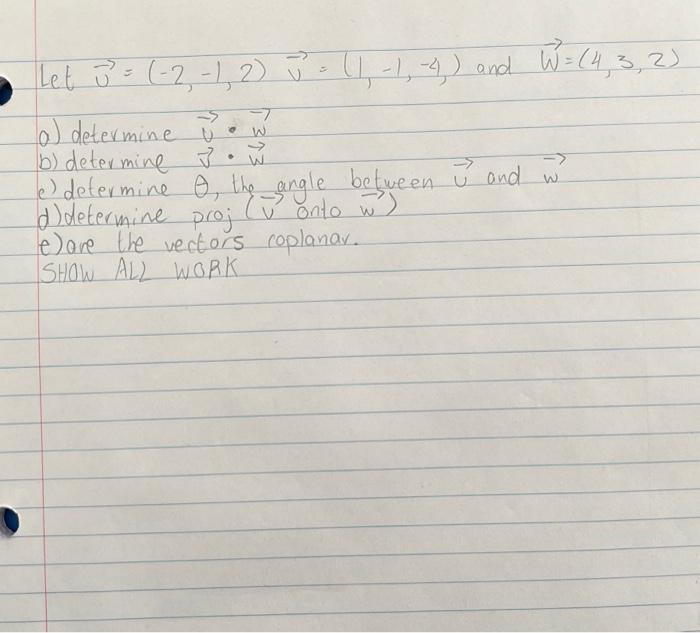 Let u⃗ = (-2, -1, 2) v⃗ = (1, -1, -4,) and W⃗ = (4, 3, 2)
a) determine u⃗ • w⃗
b) determine v⃗ • w⃗
c) determine θ, the angle between u⃗ and w⃗
d) determine proj (v⃗ onto w⃗)
e) are the vectors coplanar.
SHOW ALL WORK